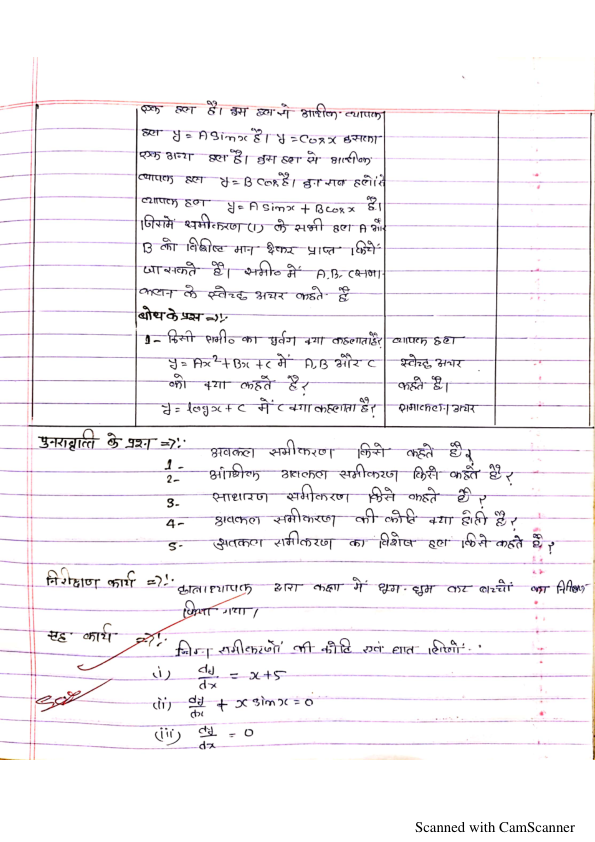 एक हल है। इस हल से अधिक व्यापक
हल y = A sinx है। y = Cosx इसका
एक अन्य हल है। इस हल से अधिक
व्यापक हल y = B Cosx है। इन सब हलों से
व्यापक हल y = A sinx + Bcosx है।
जिसमें समीकरण (1) के सभी हल A और
B को विशिष्ट मान देकर प्राप्त किये
जा सकते है। समी० में A,B, (समा-
कलन के स्वेच्छ अचर कहते है
बोध के प्रश्न =>!:
1- किसी समी० का पूर्वग क्या कहलाता है? व्यापक हल
y = Ax²+Bx+c में A,B और C स्वेच्छ अचर
को क्या कहते है? कहते है।
y = logx + c में c क्या कहलाता है? समाकलन अचर
पुनरावृत्ति के प्रश्न =>!:
1- अवकल समीकरण किसे कहते है?
2- आंशिक अवकल समीकरण किसे कहते है?
3- साधारण समीकरण किसे कहते है?
4- अवकल समीकरण की कोटि क्या होती है?
5- अवकल समीकरण का विशेष हल किसे कहते है?
निरीक्षण कार्य =>!: छात्राध्यापक द्वारा कक्षा में घूम-घूम कर बच्चों का निरीक्षण
किया गया।
सह कार्य =>!: निम्न समीकरणों की कोटि एवं घात लिखो:
(i) dy/dx = x+5
(ii) dy/dx + x sinx = 0
(iii) dy/dx = 0
Scanned with CamScanner